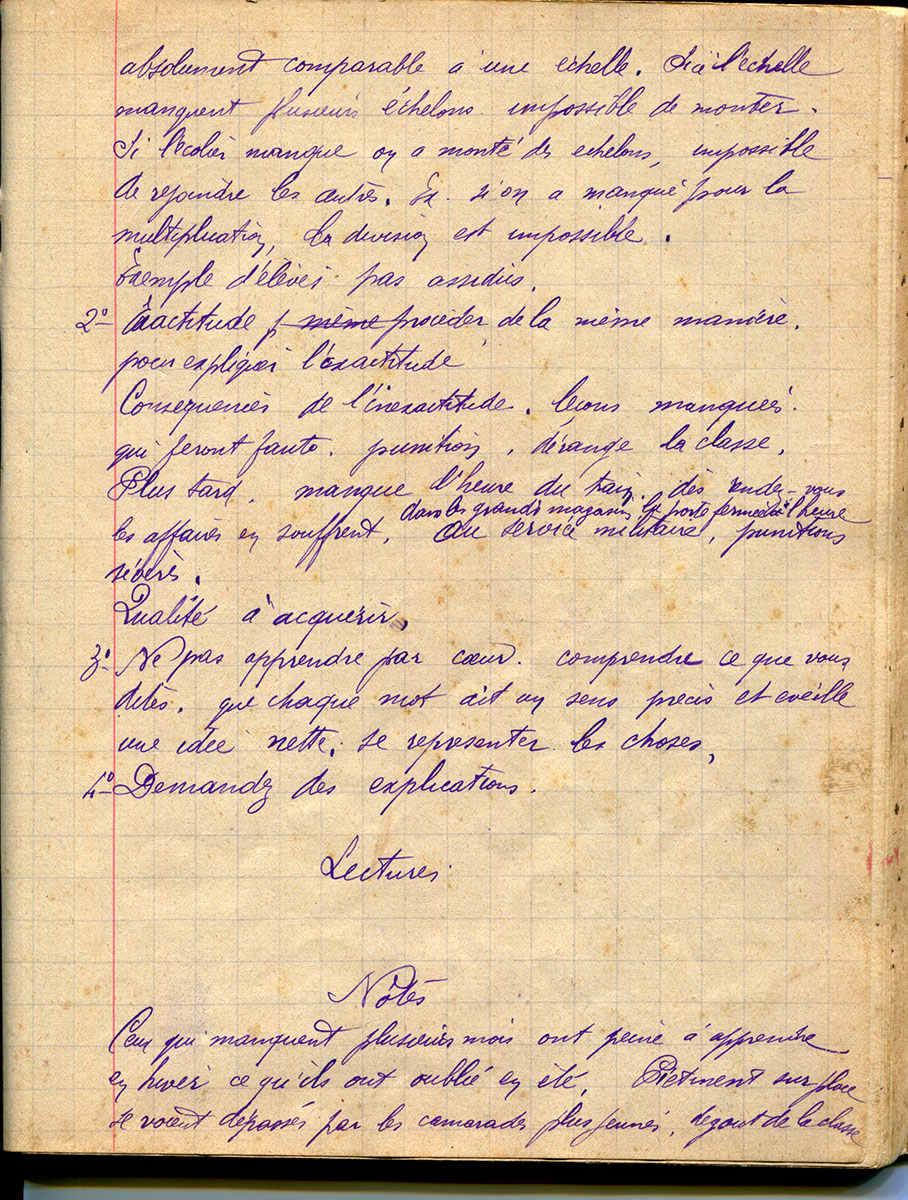 absolument comparable à une échelle. Si à l'échelle
manquent plusieurs échelons impossible de monter.
Si l'écolier manque on a monté des echelons, impossible
de rejoindre les autres. Ex. si on a manqué pour la
multiplication, la division est impossible.
Exemple d'élèves pas assidus.
2° Exactitude même procéder de la même manière.
pour expliquer l'exactitude
Consequences de l'inexactitude. leçons manquées.
qui feront faute. punition, dérange la classe.
Plus tard. manque l'heure du train. des rendez-vous
dans les grands magasins la porte fermée à l'heure
les affaires en souffrent. Au service militaire, punitions
sévères.
Qualité à acquérir.
3° Ne pas apprendre par cœur. comprendre ce que vous
dites. que chaque mot ait un sens précis et eveille
une idée nette. se représenter les choses.
4° Demandez des explications.
Lectures.
Notes
Ceux qui manquent plusieurs mois ont peine à apprendre
en hiver ce qu'ils ont oublié en été. Piétinent sur place
se voient dépassés par les camarades plus jeunes, degout de la classe